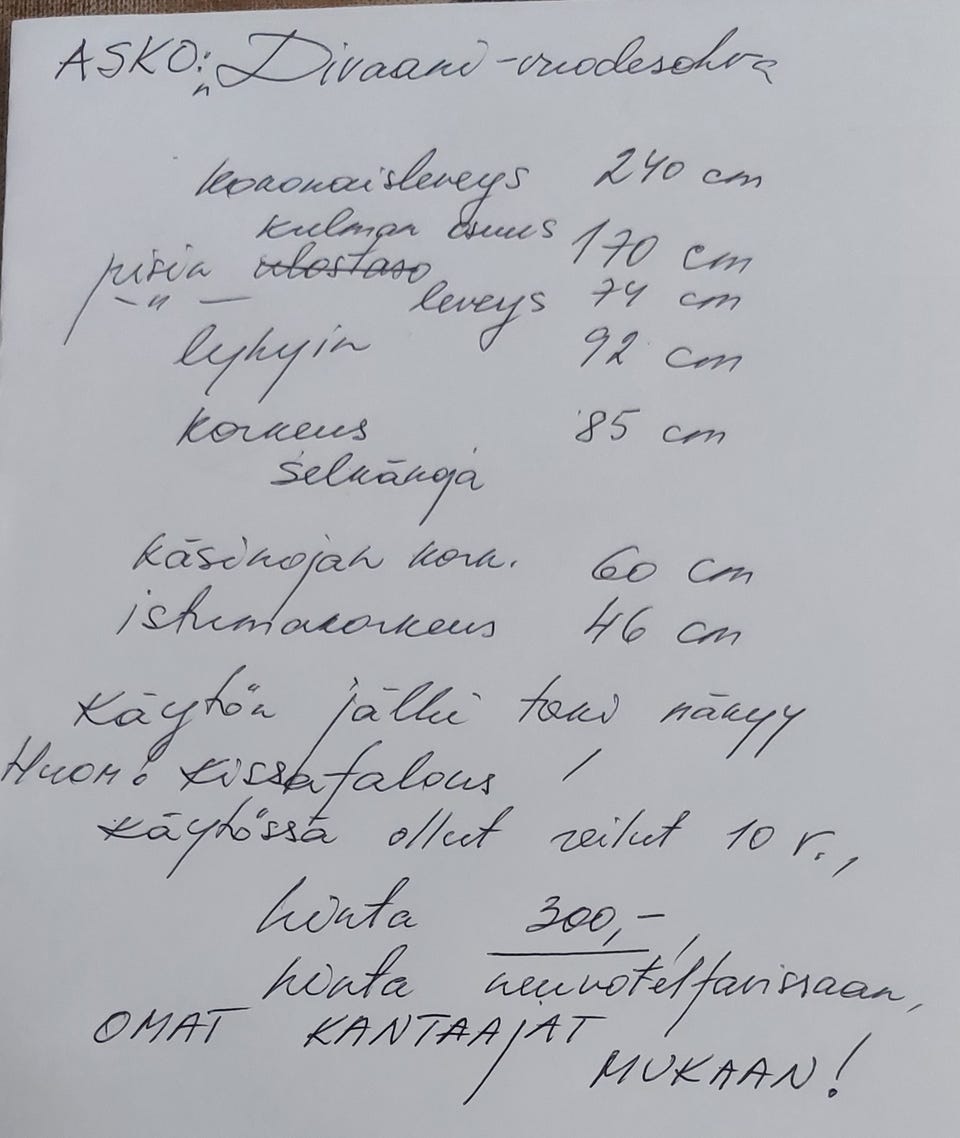 ASKO:n Divaani-vuodesohva
kokonaisleveys 240 cm
kulman osuus 170 cm
pisin ulostaso
—"— leveys 74 cm
lyhyin 92 cm
korkeus 85 cm
selkänoja
käsinojan kork. 60 cm
istumakorkeus 46 cm
Käytön jälki toki näkyy
Huom! Kissatalous /
Käytössä ollut reilut 10 v.,
hinta 300,-,
hinta neuvoteltavissaan,
OMAT KANTAAJAT
MUKAAN!